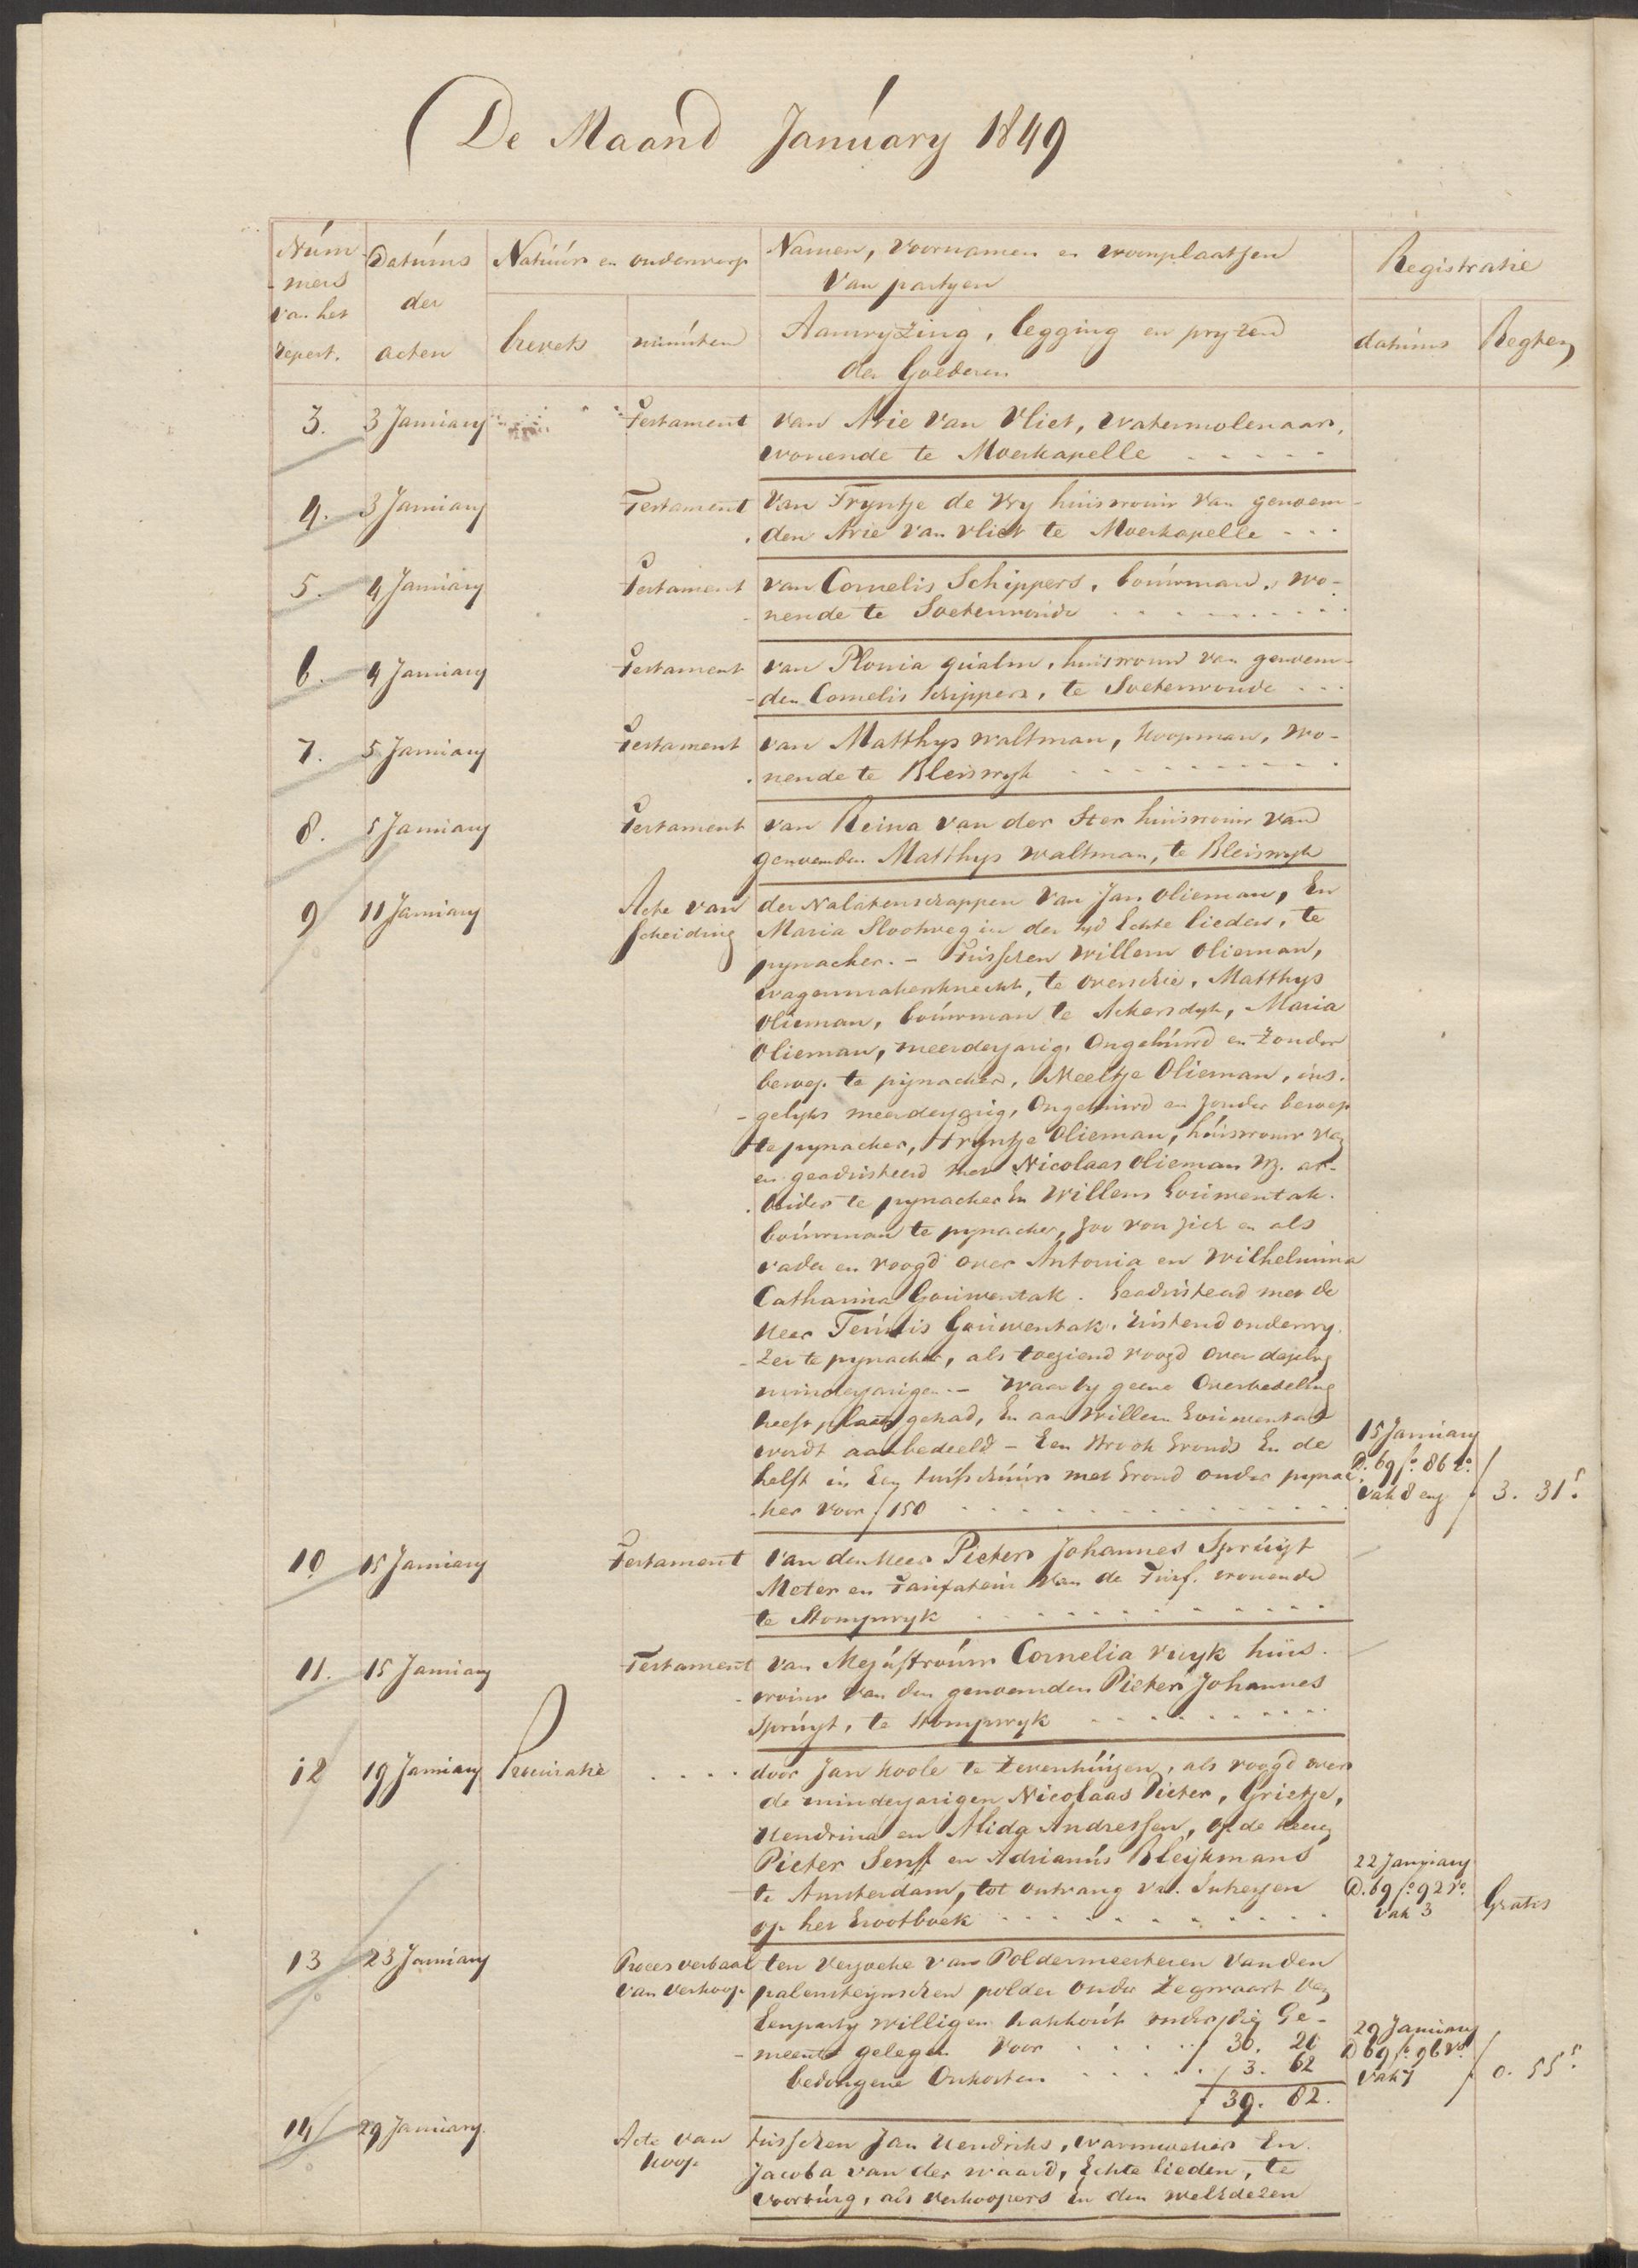 De Maand January 1849
Num- Datums Natuur en onderwerp Namen, Voornamen en woonplaatsen Registratie
-mers van partyen
van het der
repert. acten brevets minuten Aanwyzing, legging en pryzen datums Regten
der Goederen
3. 3 January Testament van Arie van Vliet, watermolenaar,
wonende te Moerkapelle
4. 3 January Testament van Tryntje de Vry huisvrouw van genoem-
den Arie van Vliet te Moerkapelle
5. 4 January Testament van Cornelis Schippers, bouwman, wo-
nende te Soetermeer
6. 4 January Testament van Plonia qualm, huisvrouw van genoem-
den Cornelis Schippers, te
7. 5 January Testament van Matthys Waltman, koopman, wo-
nende te Bleiswyk
8. 5 January Testament van Reina van der Ster huisvrouw van
genoemden Matthys Waltman, te Bleiswyk
9 11 January Acte van der Nalatenschappen van Jan Olieman, en
scheiding Maria Slootweg in der tyd Echte lieden, te
pynacker. - Tusschen Willem Olieman,
wagenmakersknecht, te overschie, Matthys
Olieman, bouwman te Ackersdyk, Maria
Olieman, meerderjarig, Ongehuwd en zonder
beroep te pynacker, Neeltje Olieman, ins-
-gelyks meerderjarig, Ongehuwd en zonder beroep
te pynacker, Tryntje Olieman, huisvrouw van
en geadsisteerd met Nicolaas Olieman Wz. ar-
beider te pynacker En Willem Gouwentak
bouwman te pynacker, zoo voor zich en als
vader en voogd over Antonia en Wilhelmina
Catharina Gouwentak. Geadsisteerd met de
Heer Teunis Gouwentak. rustend onderwy-
-zer te pynacker, als toeziend voogd over dezelve
minderjarigen. - Waarby geene Overbedeling
heeft plaats gehad, En aan Willem Gouwentak
wordt aanbedeeld - Een Strook Gronds En de 15 January
helft in Een turfschuur met Grond onder pynac- D. 69 fo. 86 ro.
-ker voor f 150 vak 8 env f 3. 31 5
10 15 January Testament van den Heer Pieter Johannes Spruyt
Meter en Taxateur van de Turf. wonende
te Stompwyk
11. 15 January Testament van Mejuffrouw Cornelia Vuyk huis-
-vrouw van den genoemden Pieter Johannes
Spruyt, te Stompwyk
12 19 January Procuratie door Jan Koole te Zevenhuizen, als voogd over
de minderjarigen Nicolaas Pieter, Grietje,
Hendrina en Alida Andressen, op de heeren
Pieter Senff en Adrianus Bleykmans 22 January
te Amsterdam, tot ontvang van Interessen D. 69 fo. 92 ro. Gratis
op het Grootboek vak 3
13 23 January Proces verbaal ten verzoeke van Poldermeesteren van den
van verkoop palensteynschen polder onder Zegwaart van
Eenparty willigen hakhout onder die Ge- 29 January
-meente gelegen Voor f 36. 20 D 69 fo. 96 vo.
bedongene Onkosten f 3. 62 vak 7 f 0. 55 5
f 39. 82.
14 29 January Acte van tusschen Jan Hendriks, warmoezier En
koop Jacoba van der Waard, Echte lieden, te
Voorburg, als verkoopers en den